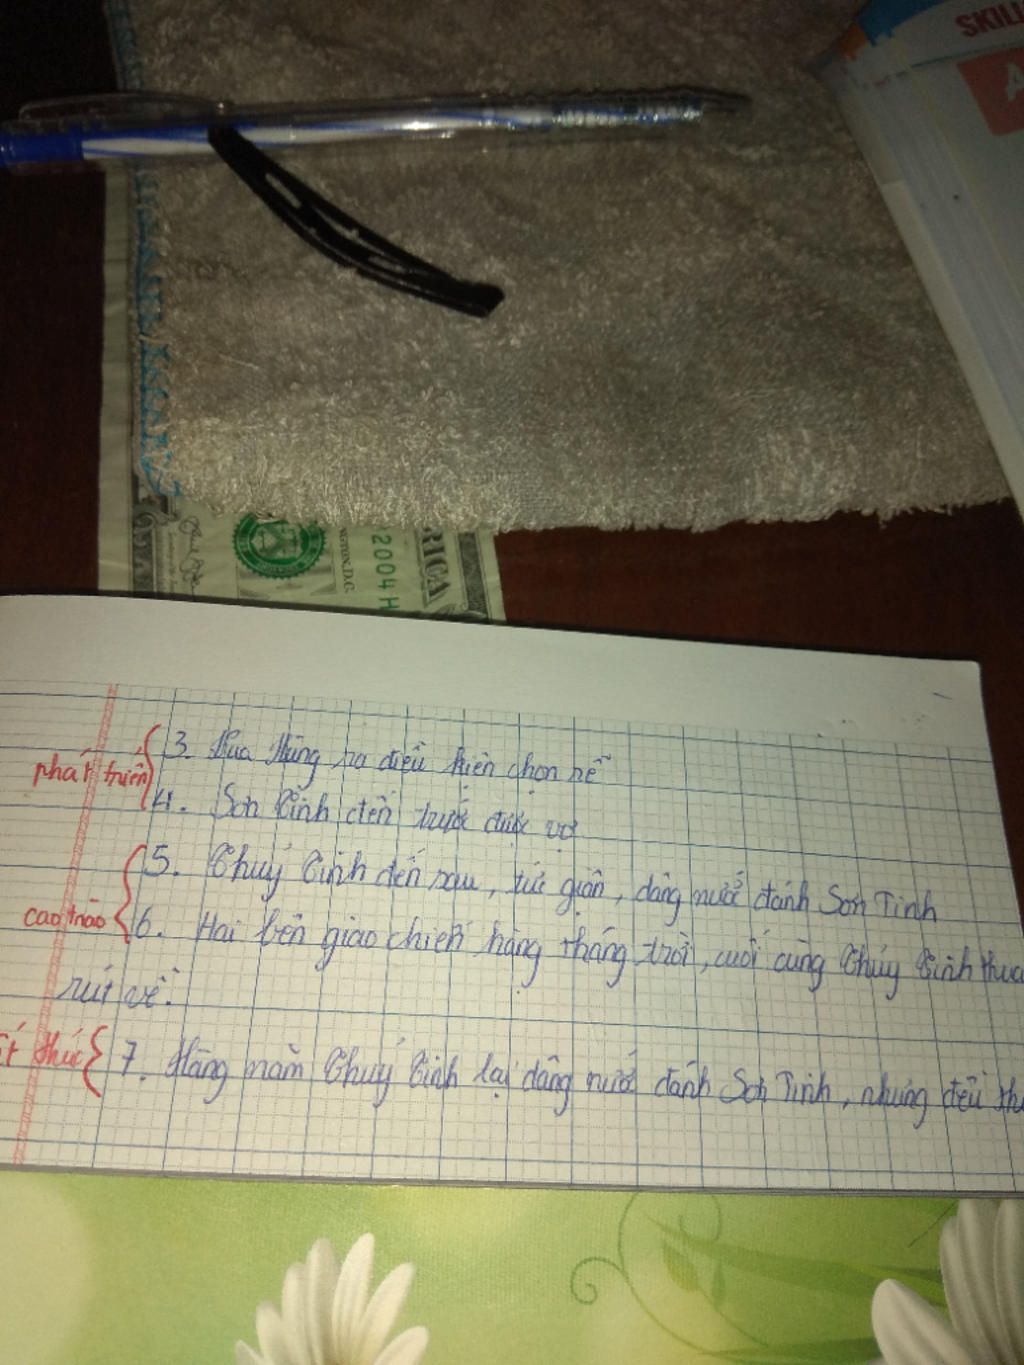 SKILL
A
RICA
2004 H
NGTON, D.C.
phát triển
3. Vua Hùng ra điều kiện chọn rể
4. Sơn Tinh đến trước được vợ
cao trào
5. Thuỷ Tinh đến sau, tức giận, dâng nước đánh Sơn Tinh
6. Hai bên giao chiến hàng tháng trời, cuối cùng Thuỷ Tinh thua
rút về.
t thúc
7. Hàng năm Thuỷ Tinh lại dâng nước đánh Sơn Tinh, nhưng đều th